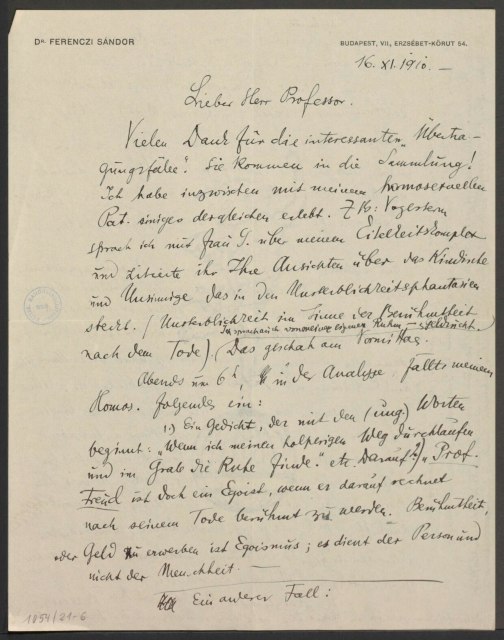 Dr. FERENCZI SÁNDOR
BUDAPEST, VII., ERZSÉBET-KÖRUT 54.
16. XI. 1910. —
Lieber Herr Professor.
Vielen Dank für die interessanten „Übertra-
gungsfälle“. Sie kommen in die Sammlung!
Ich habe inzwischen mit meinem homosexuellen
Pat. einiges dergleichen erlebt. Z B: Vorgestern
sprach ich mit Frau G. über meinen Eitelkeitskomplex
und zitierte ihr Ihre Ansichten über das Kindische
und Unsinnige das in den Unsterblichkeitsphantasien
steckt. (Unsterblichkeit im Sinne der Berühmtheit
Ich sprach auch von meiner eigenen Ruhm-
nach dem Tode) (Das geschah am Vormittag.
Abends um 6h, in der Analyse, fällts meinem
Homos. folgendes ein:
1.) Ein Gedicht, der mit den (ung.) Worten
beginnt: „Wenn ich meinen holperigen Weg durchlaufen
und im Grabe die Ruhe finde.“ etc Darauf 2) „Prof.
Freud ist doch ein Egoist, wenn es darauf rechnet
nach seinem Tode berühmt zu werden. Berühmtheit,
oder Geld zu erwerben ist Egoismus; es dient der Person und
nicht der Menschheit. —
Ein anderer Fall:
1054/21-6